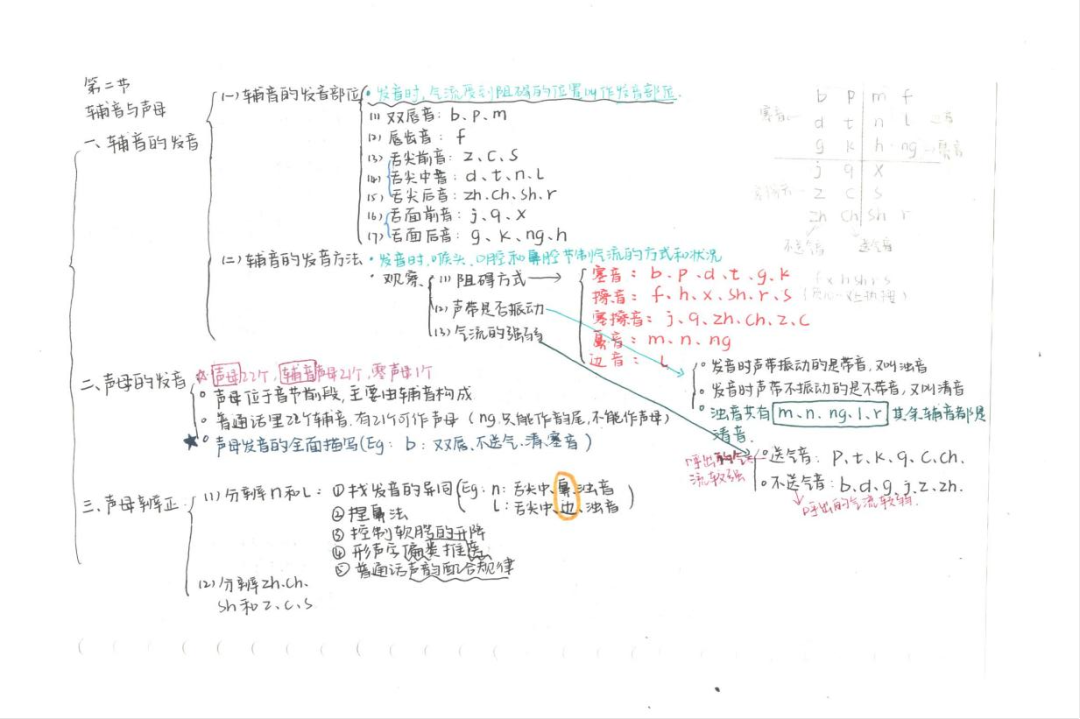 第二节
辅音与声母
一、辅音的发音
(一) 辅音的发音部位
• 发音时,气流受到阻碍的位置叫作发音部位.
(1) 双唇音: b、p、m
(2) 唇齿音: f
(3) 舌尖前音: z、c、s
(4) 舌尖中音: d、t、n、l
(5) 舌尖后音: zh、ch、sh、r
(6) 舌面前音: j、q、x
(7) 舌面后音: g、k、ng、h
(二) 辅音的发音方法
• 发音时,喉头、口腔和鼻腔节制气流的方式和状况
• 观察
(1) 阻碍方式
塞音: b、p、d、t、g、k
擦音: f、h、x、sh、r、s
塞擦音: j、q、zh、ch、z、c
鼻音: m、n、ng
边音: l
(2) 声带是否振动
。发音时声带振动的是带音,又叫浊音
。发音时声带不振动的是不带音,又叫清音
。浊音共有 m、n、ng、l、r 其余辅音都是
清音.
(3) 气流的强弱
。送气音: p、t、k、q、c、ch.
呼出的气流较强
。不送气音: b、d、g、j、z、zh.
呼出的气流较弱.
b p m f
塞音 d t n l 边音
g k h ng 鼻音
j q x
塞擦音 z c s
zh ch sh r
不送气音 送气音
f x h sh r s
二、声母的发音
☆ 声母22个, 辅音声母21个, 零声母1个
。声母位于音节前段,主要由辅音构成
。普通话里22个辅音,有21个可作声母 (ng只能作韵尾,不能作声母)
★。声母发音的全面描写(Eg: b: 双唇、不送气、清、塞音)
三、声母辨正
(1) 分辨n和l:
①找发音的异同 (Eg: n: 舌尖中、鼻、浊音
l: 舌尖中、边、浊音)
②捏鼻法
③控制软腭的升降
④形声字偏旁类推
⑤普通话声韵配合规律
(2) 分辨zh、ch、
sh和z、c、s